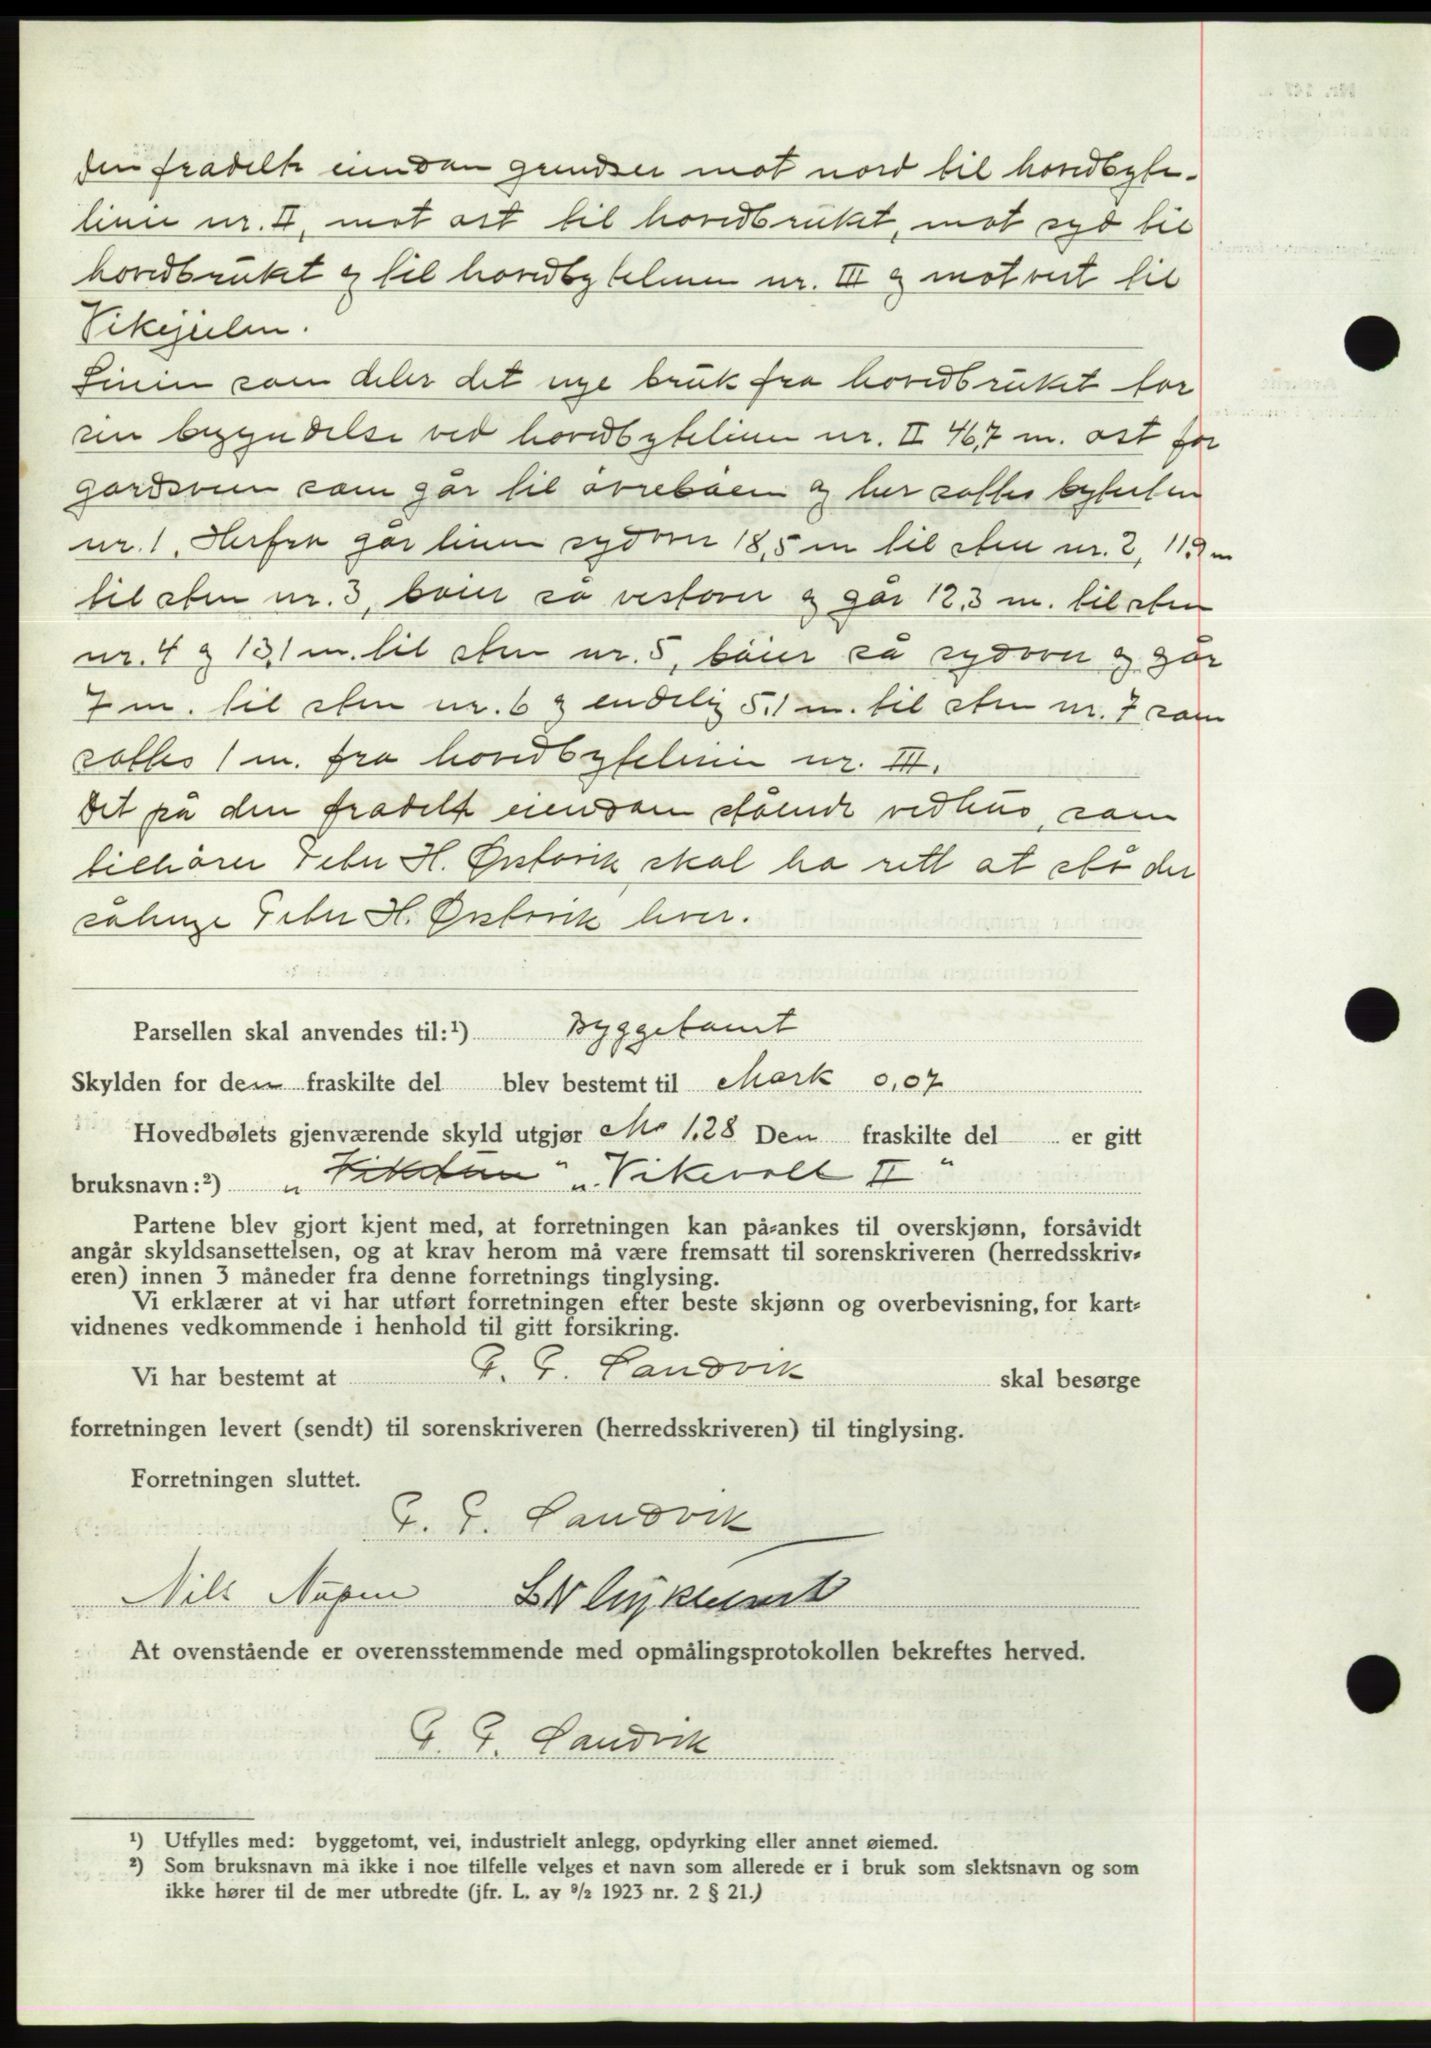 Den fradelte eiendom grendser mot nord til hovedbyte-
linie nr. II, mot ost til hovedbruket, mot syd til
hovedbruket og til hovedbytelinien nr. III og mot vest til
Vikejeilen.
Linien som deler det nye bruk fra hovedbruket tar
sin begyndelse ved hovedbytelinien nr. II 46,7 m. ost for
gardsveien som går til övreböen og her sattes bytesten
nr. 1. Herfra går linien sydover 18,5 m til sten nr. 2, 11.9 m
til sten nr. 3, böier så vestover og går 12,3 m. til sten
nr. 4 og 13,1 m. til sten nr. 5, böier så sydover og går
7 m. til sten nr. 6 og endelig 5,1 m. til sten nr. 7 som
sattes 1 m. fra hovedbytelinie nr. III.
Det på den fradelte eiendom stående vedhus, som
tilhörer Peter H. Ørstavik skal ha rett at stå der
sålenge Peter H. Ørstavik lever.
Parsellen skal anvendes til:¹) Byggetomt
Skylden for den fraskilte del blev bestemt til Mark 0,07
Hovedbølets gjenværende skyld utgjør Mk 1.28 Den fraskilte del er gitt
bruksnavn:²) „Viketun" „Vikevoll II"
Partene blev gjort kjent med, at forretningen kan på-ankes til overskjønn, forsåvidt
angår skyldsansettelsen, og at krav herom må være fremsatt til sorenskriveren (herredsskriv-
eren) innen 3 måneder fra denne forretnings tinglysing.
Vi erklærer at vi har utført forretningen efter beste skjønn og overbevisning, for kart-
vidnenes vedkommende i henhold til gitt forsikring.
Vi har bestemt at P. P. Sandvik skal besørge
forretningen levert (sendt) til sorenskriveren (herredsskriveren) til tinglysing.
Forretningen sluttet.
P. P. Sandvik
Nils Nupen
At ovenstående er overensstemmende med opmålingsprotokollen bekreftes herved.
P. P. Sandvik
¹) Utfylles med: byggetomt, vei, industrielt anlegg, opdyrking eller annet øiemed.
²) Som bruksnavn må ikke i noe tilfelle velges et navn som allerede er i bruk som slektsnavn og som
ikke hører til de mer utbredte (jfr. L. av ⁹/₂ 1923 nr. 2 § 21.)